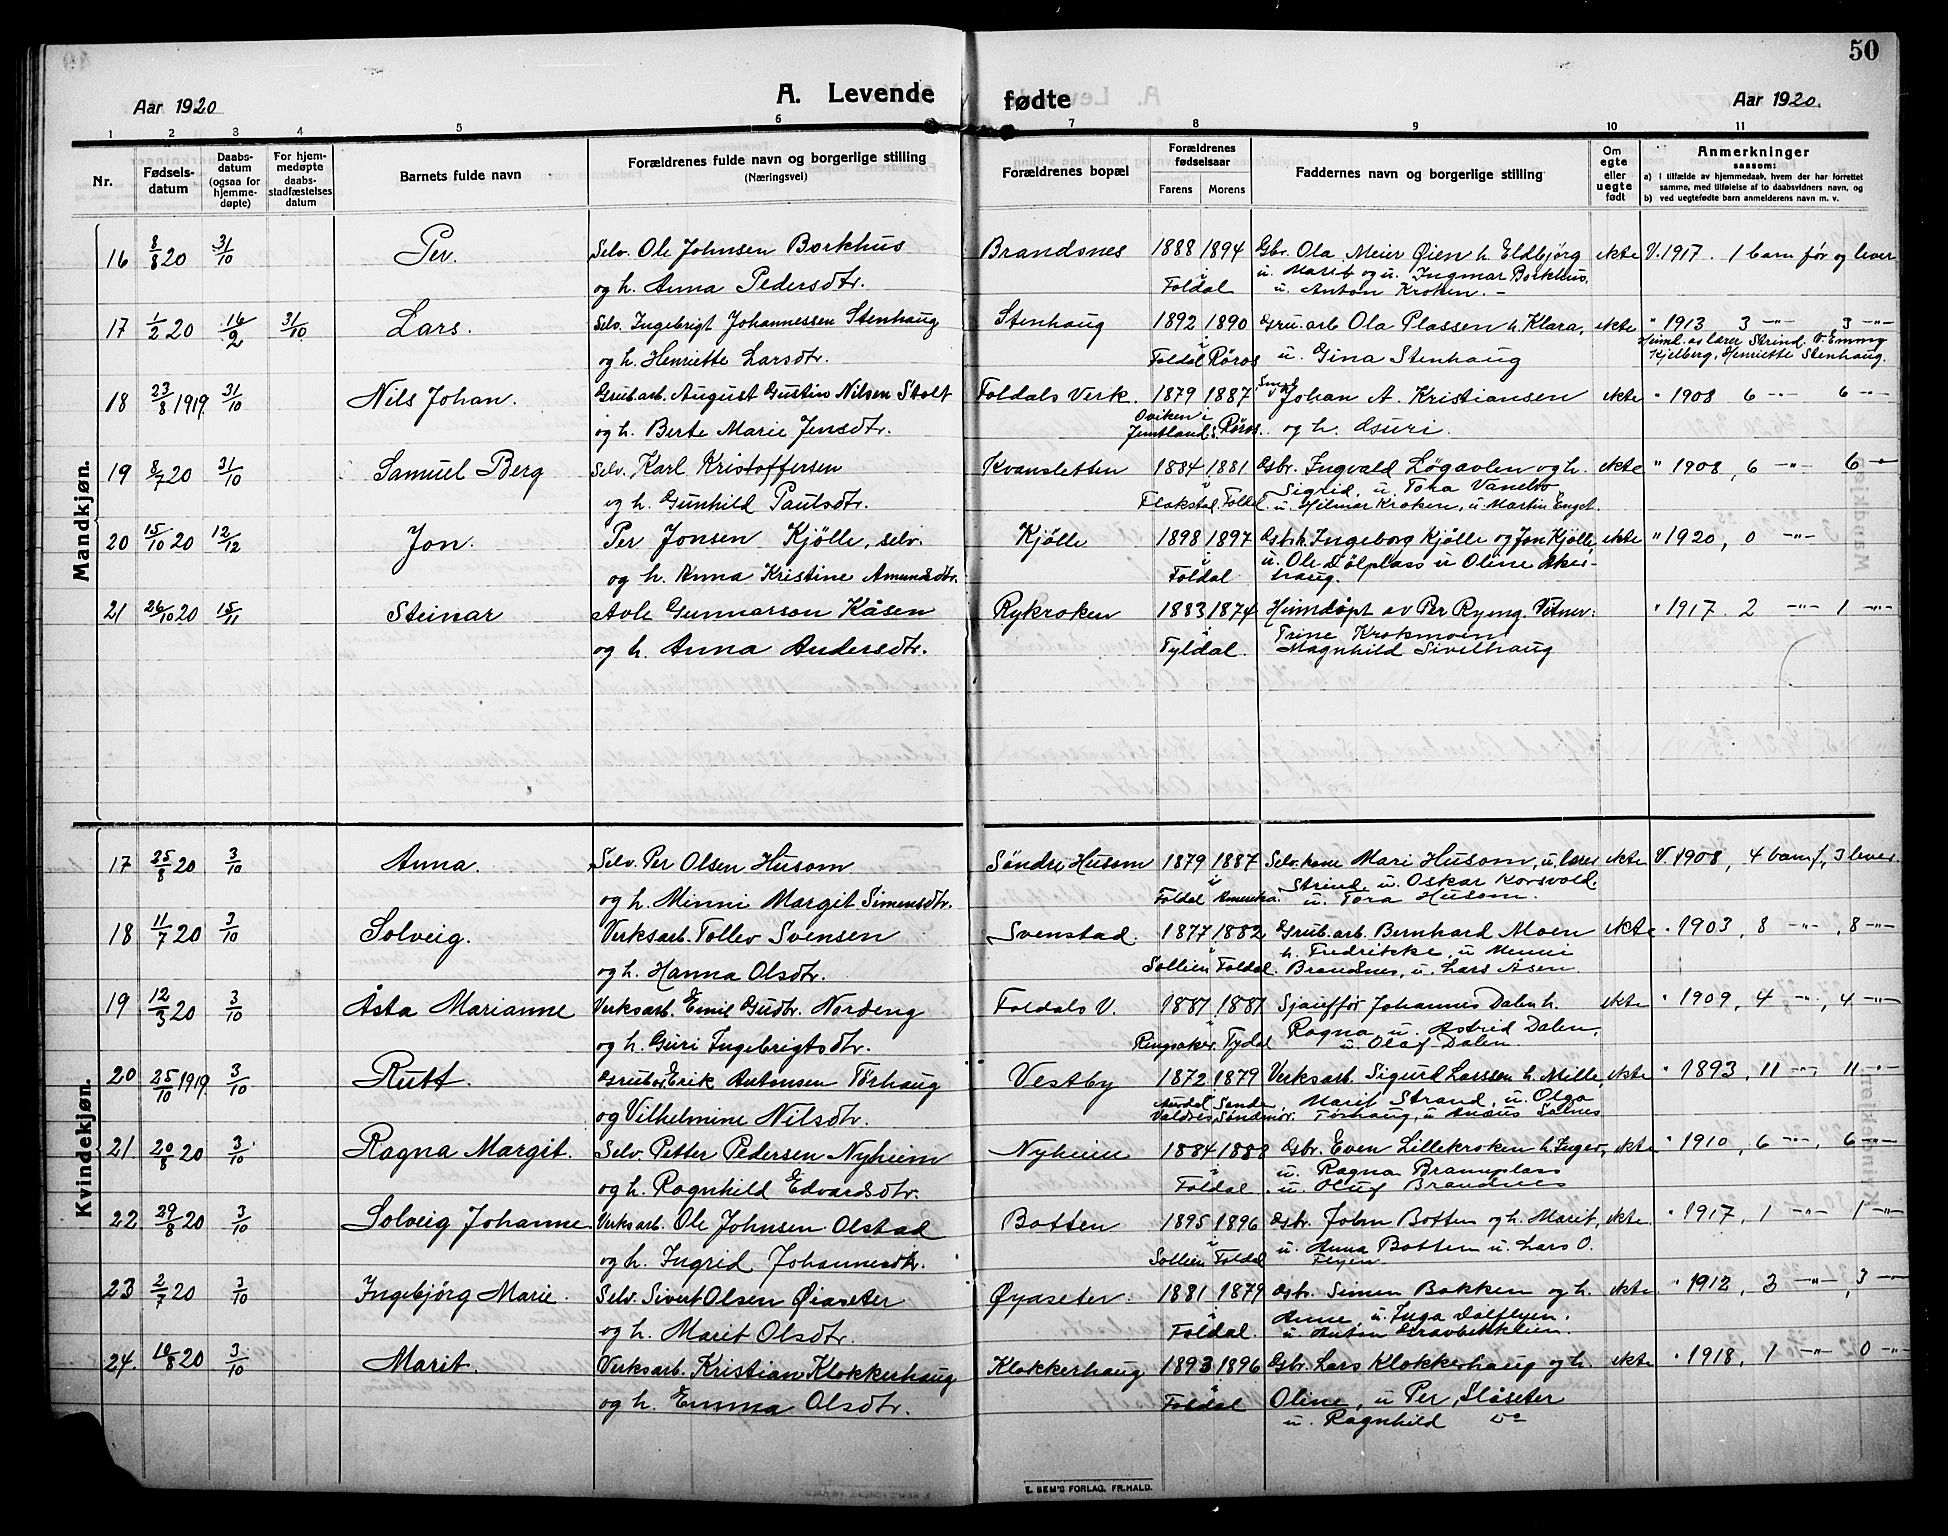 50
Aar 1920
A. Levende
fødte
Aar 1920.
1 2 3 4 5 6 7 8 9 10 11
Nr.
Fødsels-
datum
Daabs-
datum
(ogsaa for
hjemme-
døpte)
For hjem-
medøpte
daabs-
stadfæstelses
datum
Barnets fulde navn
Forældrenes fulde navn og borgerlige stilling
(Næringsvei)
Forældrenes bopæl
Forældrenes
fødselsaar
Farens Morens
Faddernes navn og borgerlig stilling
Om
egte
eller
uegte
født
Anmerkninger
saasom:
a) i tilfælde av hjemmedaab, hvem der har forrettet
samme, med tilføielse af to daabsvidners navn, og
b) ved uegtefødte barn anmelderens navn m. v.
Mandkjøn.
16 8/8 20 31/10 Per. Selv. Ole Johnsen Borkhus Brandsnes 1888 1894 Gbr. Ola Meier Øien h. Eldbjörg ekte V. 1917. 1 barn før og lever
og h. Anna Pedersdtr. i Foldal u. Marit og u. Ingmar Borkhus.
u. Anton Kroken. -
17 1/2 20 16/2 31/10 Lars. Selv. Ingebrigt Johannessen Stenhaug Stenhaug 1892 1890 Gru.arb Ola Plassen h. Klara, ekte " 1913 3 -"- 3 -"-
og h. Henriette Larsdtr. i Foldal Røros u. Gina Stenhaug Heimd. av lærer Strind. V. Emmy
Kjelberg, Henriette Stenhaug.
18 23/8 1919. 31/10 Nils Johan. Grub.arb. August Gustin Nilsen Stolt Foldals Verk. 1879 1887 Johan A. Kristiansen ekte " 1908 6 -"- 6 -"-
og h. Berte Marie Jensdtr. Oviken i Jemtland Røros. og h. Guri.
19 8/7 20 31/10 Samuel Berg Selv. Karl Kristoffersen Kvansletten 1884 1881 Gbr. Ingvald Løgavlen og h. ekte " 1908, 6 -"- 6 -"-
og h. Gunhild Paulsdtr. i Flakstad. Foldal. Sigrid, u. Tora Vanebo
u. Hilmar Kroken, u. Martin Enget.
20 15/10 20 12/12 Jon. Per Jonsen Kjölle, selv. Kjölle 1898 1897 Gbr.k. Ingeborg Kjölle og Jon Kjölle, ekte " 1920, 0 -"-
og h. Anna Kristine Amundsdtr. i Foldal u. Ole Dölplass u Oline Aker-
haug.
21 26/10 20 15/11 Steinar Avle Gunnarson Kåsen Rykroken 1883 1874 Heimdöpt av Per Ryeng. Vitner: " 1917. 2 -"- 1 -"-
og h. Anna Andersdtr. i Tyldal. Trine Krokmoen
Magnhild Sivelhaug
Kvindekjøn.
17 25/8 20 3/10 Anna. Selv. Per Olsen Husom Söndre Husom 1879 1887 Selv. kone Mari Husom, u. lærer ekte V. 1908, 4 barn f, 3 lever.
og h. Minni Margit Simensdtr. i Foldal Amerika. Strind, u. Oskar Korsvold.
u. Tora Husom.
18 11/7 20 3/10 Solveig. Verksarb. Tollev Svensen Svenstad. 1877 1882 Grub.arb. Bernhard Moen ekte " 1903, 8 -"-, 8 -"-
og h. Hanna Olsdtr. i Sollien Foldal. h. Fredrikke, u Menni
Brandsnes, u. Lars Åsen
19 12/3 20 3/10 Åsta Marianne Verksarb. Emil Gudbr. Nordeng Foldals V. 1887 1881 Sjauffør Johannes Dalen h. ekte " 1909, 4 -"-, 4 -"-
og h. Guri Ingebrigtsdtr. i Ringsaker. Tydal Ragna, u. Astrid Dalen,
u. Olaf Dalen.
20 25/10 1919. 3/10 Rutt. Erik Antonsen Törhaug Vestby 1872 1879 Verksarb. Sigurd Larssen h. Mille, ekte " 1893, 11 -"- 11 -"-
og Vilhelmine Nilsdtr. Aurdal Valdres, Sande Søndmør. Marit Strand, u. Olga
Törhaug, u. Anders Salnes
21 20/8 20 3/10 Ragna Margit. Selv. Petter Pedersen Nyheim Nyheim 1884 1888 Gbr. Even Lillekroken h. Inger, ekte " 1910, 6 -"-, 6 -"-
og h. Ragnhild Edvardsdtr. i Foldal u. Ragna Brænnplass
u. Oluf Brandnes
22 29/8 20 3/10 Solveig Johanne Verksarb. Ole Johnsen Olstad Botten 1895 1896 Gbr. John Botten og h. Marit, ekte. " 1917, 1 -"- 1 -"-
og h. Ingrid Johannesdtr. i Sollien Foldal u. Anna Botten u. Lars O.
Flyen.
23 2/7 20 3/10 Ingebjörg Marie. Selv. Sivert Olsen Øiaseter Øyaseter. 1881 1879 Gbr. Simen Bakken og h. ekte " 1912, 3 -"-, 3 -"-
og h. Marit Olsdtr. i Foldal. Anne, u. Inga Dalflyen.
u. Anton Gravbekklien.
24. 16/8 20 3/10 Marit. Verksarb. Kristian Klokkerhaug Klokkerhaug 1893 1896 Gbr. Lars Klokkerhaug og h. ekte " 1918, 1 -"- 0 -"-
og h. Emma Olsdtr. i Foldal Oline, u. Per Slåseter
u. Ragnhild
E. SEM'S FORLAG, FR.HALD.